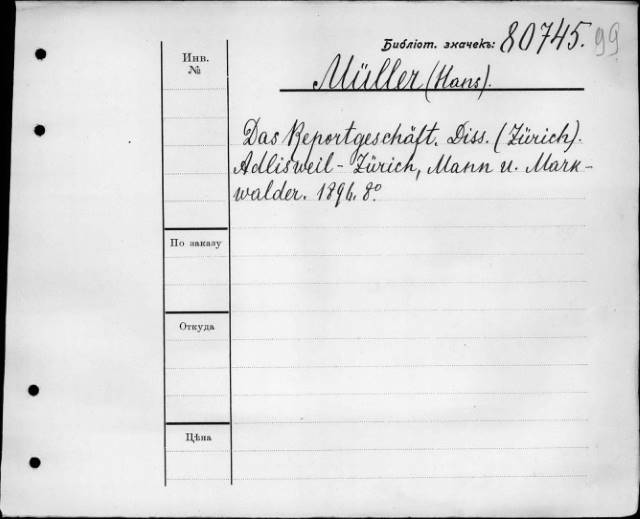 Библіот. значекъ: 80745. 99
Инв. №
Müller (Hans).
Das Reportgeschäft. Diss. (Zürich).
Adlisweil - Zürich, Mann u. Mark-
walder. 1896. 8º
По заказу
Откуда
Цѣна